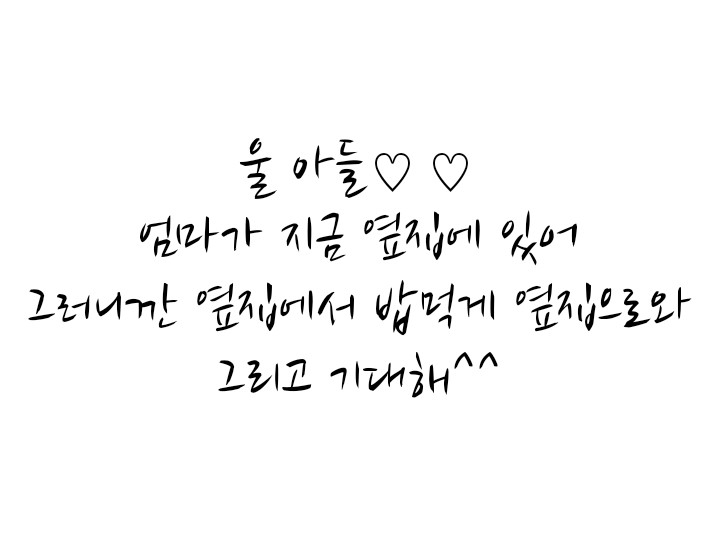 울 아들♡ ♡
엄마가 지금 옆집에 있어
그러니깐 옆집에서 밥먹게 옆집으로와
그리고 기대해^^